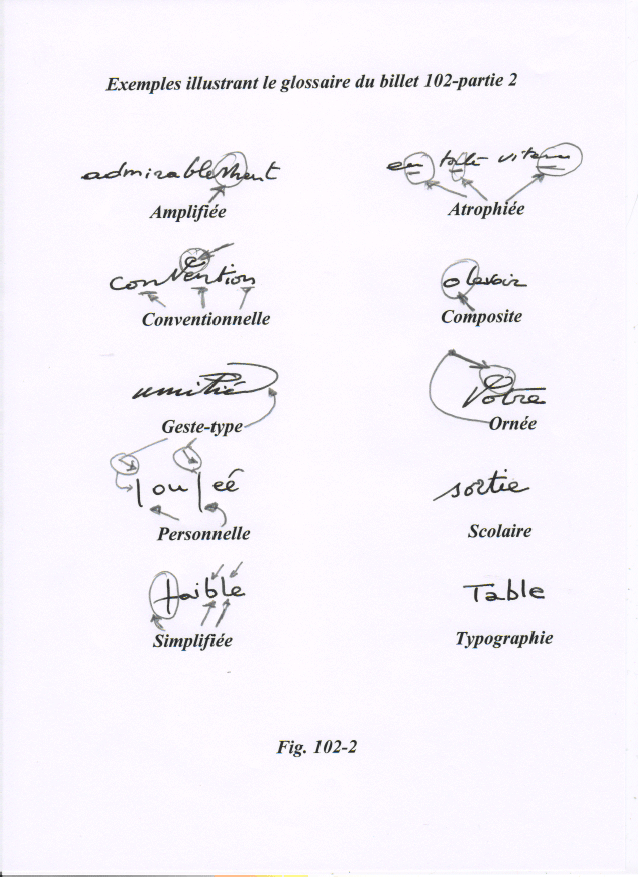 Exemples illustrant le glossaire du billet 102-partie 2
admirablement en toute vitesse
Amplifiée Atrophiée
convention devoir
Conventionnelle Composite
amitié Votre
Geste-type Ornée
Personnelle
sortie
Scolaire
faible Table
Simplifiée Typographie
Fig. 102-2